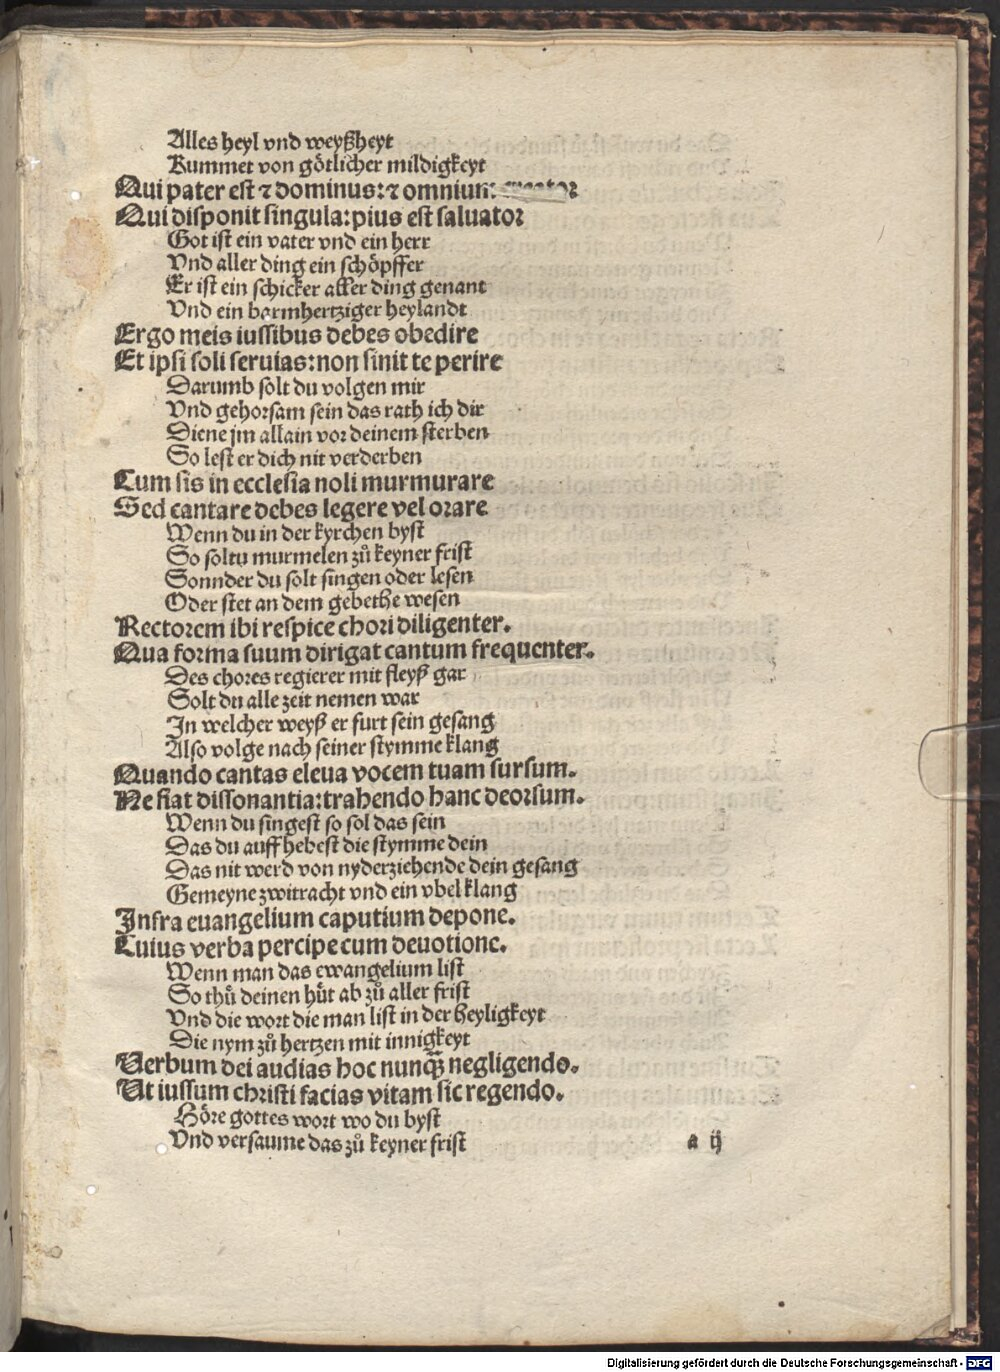 Alles heyl vnd weyßheyt
Kummet von götlicher mildigkeyt
Qui pater est ⁊ dominus: ⁊ omnium creator
Qui disponit singula: pius est saluator
Got ist ein vater vnd ein herr
Vnd aller ding ein schöpffer
Er ist ein schicker aller ding genant
Vnd ein barmhertziger heylandt
Ergo meis iussibus debes obedire
Et ipsi soli seruias: non sinit te perire
Darumb solt du volgen mir
Vnd gehorsam sein das rath ich dir
Diene jm allain vor deinem sterben
So lest er dich nit verderben
Cum sis in ecclesia noli murmurare
Sed cantare debes legere vel orare
Wenn du in der kyrchen byst
So soltu murmelen zů keyner frist
Sonnder du solt singen oder lesen
Oder stet an dem gebethe wesen
Rectorem ibi respice chori diligenter.
Qua forma suum dirigat cantum frequenter.
Des chores regierer mit fleyß gar
Solt du alle zeit nemen war
In welcher weyß er furt sein gesang
Also volge nach seiner stymme klang
Quando cantas eleua vocem tuam sursum.
Ne fiat dissonantia: trahendo hanc deorsum.
Wenn du singest so sol das sein
Das du auff hebest die stymme dein
Das nit werd von nyderziehende dein gesang
Gemeyne zwitracht vnd ein vbel klang
Infra euangelium caputium depone.
Cuius verba percipe cum deuotione.
Wenn man das ewangelium list
So thů deinen hůt ab zů aller frist
Vnd die wort die man list in der heyligkeyt
Die nym zů hertzen mit innigkeyt
Verbum dei audias hoc nunqꝫ negligendo.
Ut iussum christi facias vitam sic regendo.
Höre gottes wort wo du byst
Vnd versaume das zů keyner frist
a ij
Digitalisierung gefördert durch die Deutsche Forschungsgemeinschaft - DFG